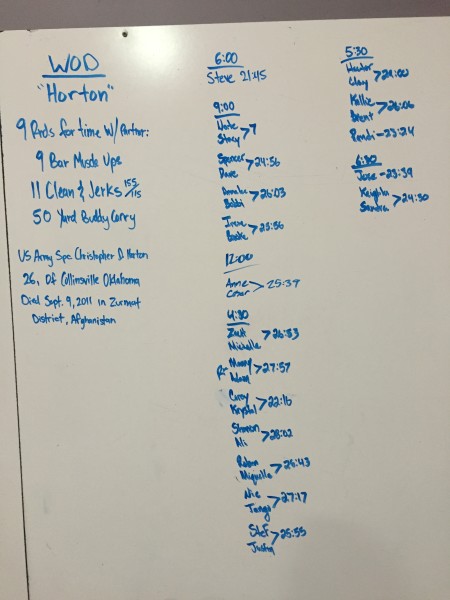 WOD
"Horton"
9 Rnds for time w/ Partner:
9 Bar Muscle Ups
11 Clean & Jerks 155/115
50 Yard Buddy Carry
US Army Spc. Christopher D. Horton
26, Of Collinsville Oklahoma
Died Sept. 9, 2011 in Zurmat
District, Afghanistan
6:00
Steve 21:45
9:00
Nate
Stacy >?
Spencer
Dave >24:56
Bobbi >26:03
Irene >23:56
12:00
Anne
Omar >25:39
4:30
Zach
Michelle >26:33
Manny
Adam >27:57
Corey
Krystal >22:16
Shannon
Ali >28:02
Miguelle >26:43
Nic
Tango >27:17
Stef
Justin >25:55
5:30
Hunter
Clay >29:00
Kallie
Brent >26:06
23:24
6:30
Jose - 23:39
Sandra >24:30